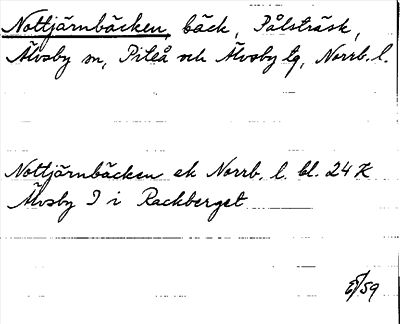 Nottjärnbäcken, bäck, Pålsträsk,
Älvsby sn, Piteå och Älvsby tg, Norrb. l.
Nottjärnbäcken ek Norrb. l. bl. 24 K
Älvsby I i Rackberget
/59